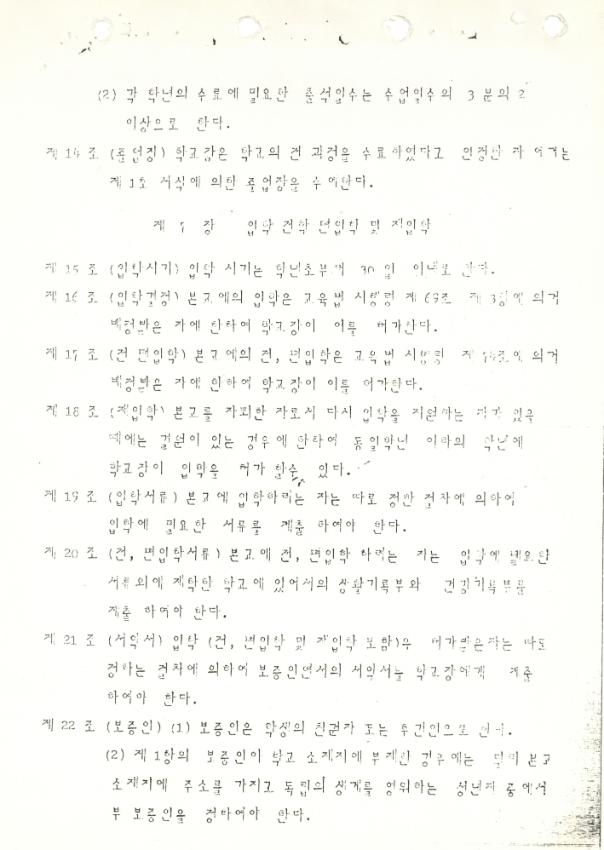 (2) 각 학년의 수료에 필요한 출석일수는 수업일수의 3 분의 2
이상으로 한다.
제 14 조 (졸업장) 학교장은 학교의 전 과정을 수료하였다고 인정한 자 에게는
제 1호 서식에 의한 졸업장을 수여한다.
제 장 입학 전학 편입학 및 재입학
제 15 조 (입학시기) 입학 시기는 학년초부터 30 일 이내로 한다.
제 16 조 (입학결정) 본교에의 입학은 교육법 시행령 제 69조 제 3항에 의거
배정받은 자에 한하여 학교장이 이를 허가한다.
제 17 조 (전 편입학) 본교에의 전, 편입학은 교육법 시행령 의거
배정받은 자에 한하여 학교장이 이를 허가한다.
제 18 조 (재입학) 본교를 자퇴한 자로서 다시 입학을 지원하는 자가 있을
때에는 결원이 있는 경우에 한하여 동일학년 이하의 학년에
학교장이 입학을 허가 할수 있다.
제 19 조 (입학서류) 본교에 입학하려는 자는 따로 정한 절차에 의하여
입학에 필요한 서류를 제출 하여야 한다.
제 20 조 (전, 편입학서류) 본교에 전, 편입학 하려는 자는 입학에 필요한
서류외에 재학한 학교에 있어서의 생활기록부와 건강기록부를
제출 하여야 한다.
제 21 조 (서약서) 입학 (전, 편입학 및 재입학 포함)을 허가받은자는 따로
정하는 절차에 의하여 보증인연서의 서약서를 학교장에게 제출
하여야 한다.
제 22 조 (보증인) (1) 보증인은 학생의 친권자 또는 후견인으로 한다.
(2) 제 1항의 보증인이 학교 소재지에 부재한 경우에는 본교
소재지에 주소를 가지고 독립의 생계를 영위하는 성년자 중에서
부 보증인을 정하여야 한다.